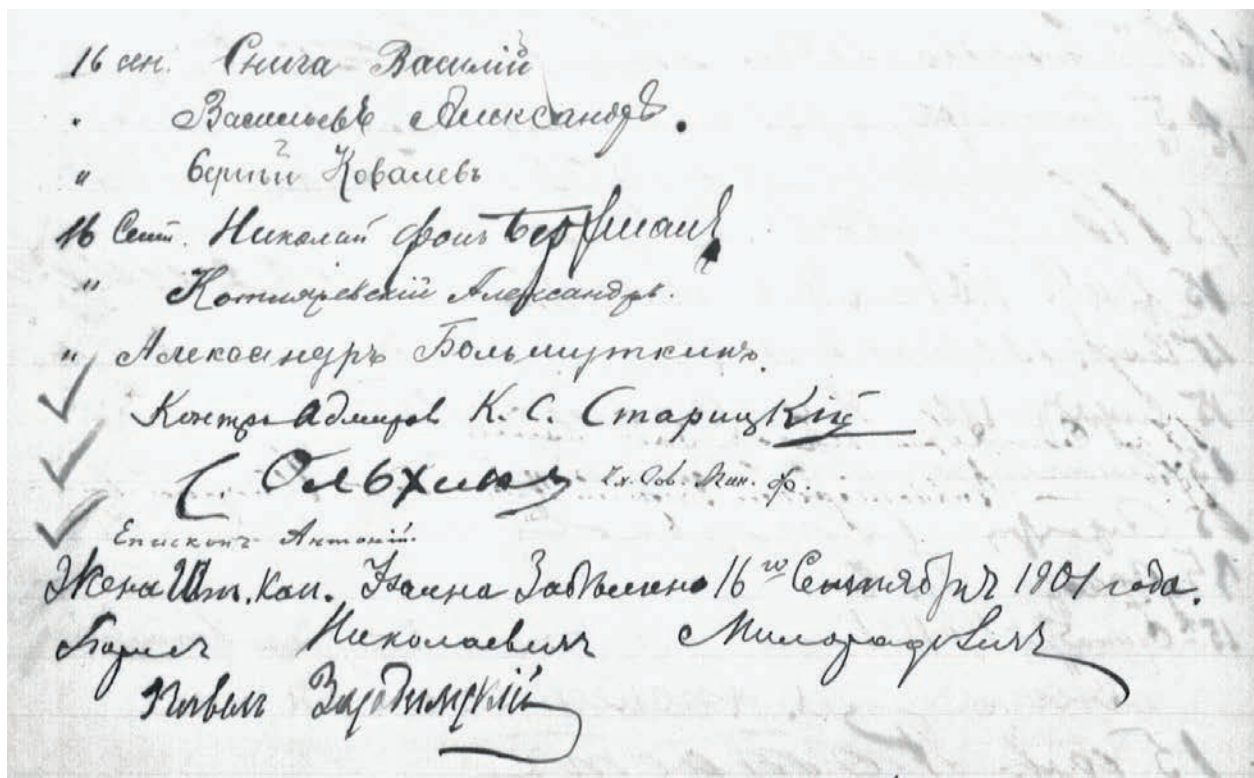 16 сен. Снига Василій
" Васильевъ Александръ.
" Сергѣй Ковалевъ
16 Сент. Николай фонъ
" Котляревскій Александръ.
" Александръ Большуткинъ.
Контръ Адмиралъ К. С. Старицкій
Ольхинъ Чл. Сов. Мин. ф.
Епископъ Антоній.
Жена Шт. Кап. 16го Сентября 1901 года.
Борисъ Николаевичъ Милорадовичъ
Павелъ